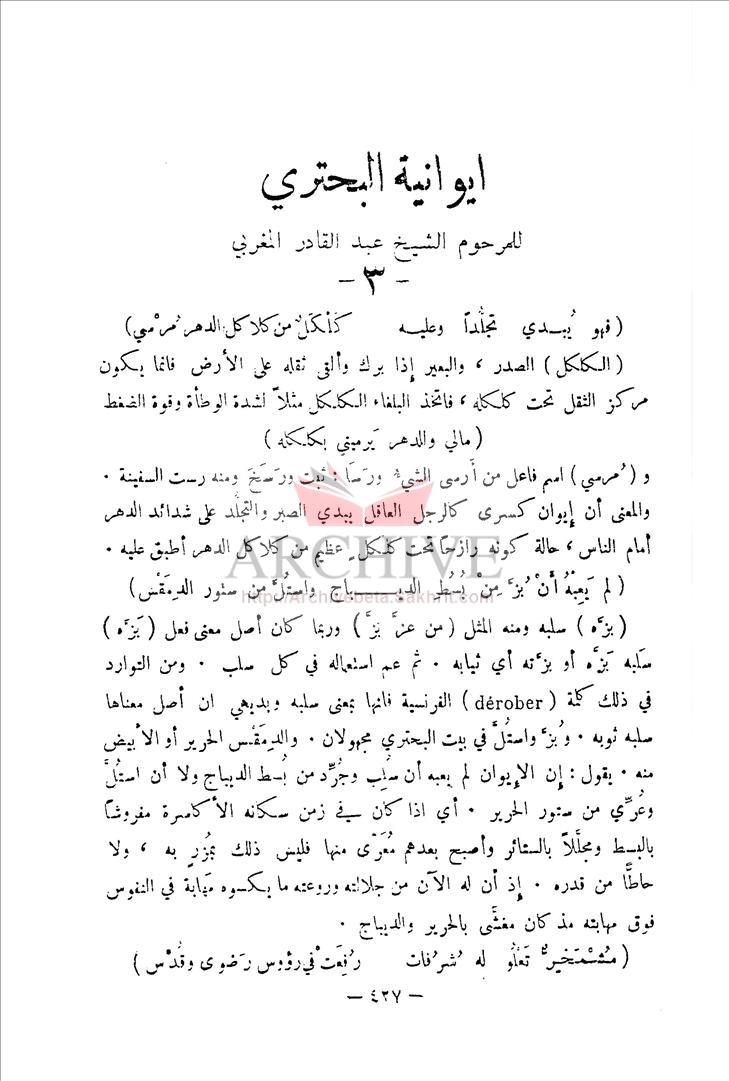 ايوانية البحتري
للمرحوم الشيخ عبد القادر المغربي
- ٣ -
(فهو يُبـدي تجلُّداً وعليـه كَلْكَلٌ من كلاكل الدهر مُرْسي)
(الكلكل) الصدر ، والبعير إذا برك وألقى ثقله على الأرض فانما يكون
مركز الثقل تحت كلكله ، فاتخذ البلغاء الكلكل مثلاً لشدة الوطأة وقوة الضغط
(مالي والدهر يَرميني بكلكله)
و (مُرسي) اسم فاعل من أَرسى الشيءُ ورَسَا : ثبت ورَسَخَ ومنه رست السفينة .
والمعنى أن إيوان كسرى كالرجل العاقل يبدي الصبر والتجلُّد على شدائد الدهر
أمام الناس ، حالة كونه رازحاً تحت كلكلٍ عظيم من كلاكل الدهر أطبق عليه .
ARCHIVE
http://Archivebeta.Sakhrit.com
(لم يَعِبْهُ أَنْ بُزَّ مِنْ بُسُطِ الديبـاج واستُلَّ من ستور الدِمَقْس)
(بزَّه) سلبه ومنه المثل (من عزَّ بَزَّ) وربما كان أصل معنى فعل (بَزَّه)
سَلَبه بَزَّه أو بزَّته أي ثيابه . ثم عم استعماله في كل سلب . ومن التوارد
في ذلك كلمة (dérober) الفرنسية فانها بمعنى سلبه وبديهي ان أصل معناها
سلبه ثوبه . وبُزَّ واستُلَّ في بيت البحتري مجهولان . والدِمَقْس الحرير أو الأبيض
منه . يقول : إن الإيوان لم يعبه أن سُلِب وجُرِّد من بُسط الديباج ولا أن استُلَّ
وعُرِّي من ستور الحرير . أي اذا كان في زمن سكانه الأكاسرة مفروشاً
بالبسط ومجلَّلاً بالستائر وأصبح بعدهم مُعَرًّى منها فليس ذلك بمُزرٍ به ، ولا
حاطًّا من قدره . إذ أن له الآن من جلالته وروعته ما يكسوه مهابة في النفوس
فوق مهابته مذ كان مغشَّى بالحرير والديباج .
(مُشْمَخِرٌّ تَعْلُو له شُرُفات رُفِعَتْ في رؤوس رَضوى وقُدْس)
- ٤٢٧ -